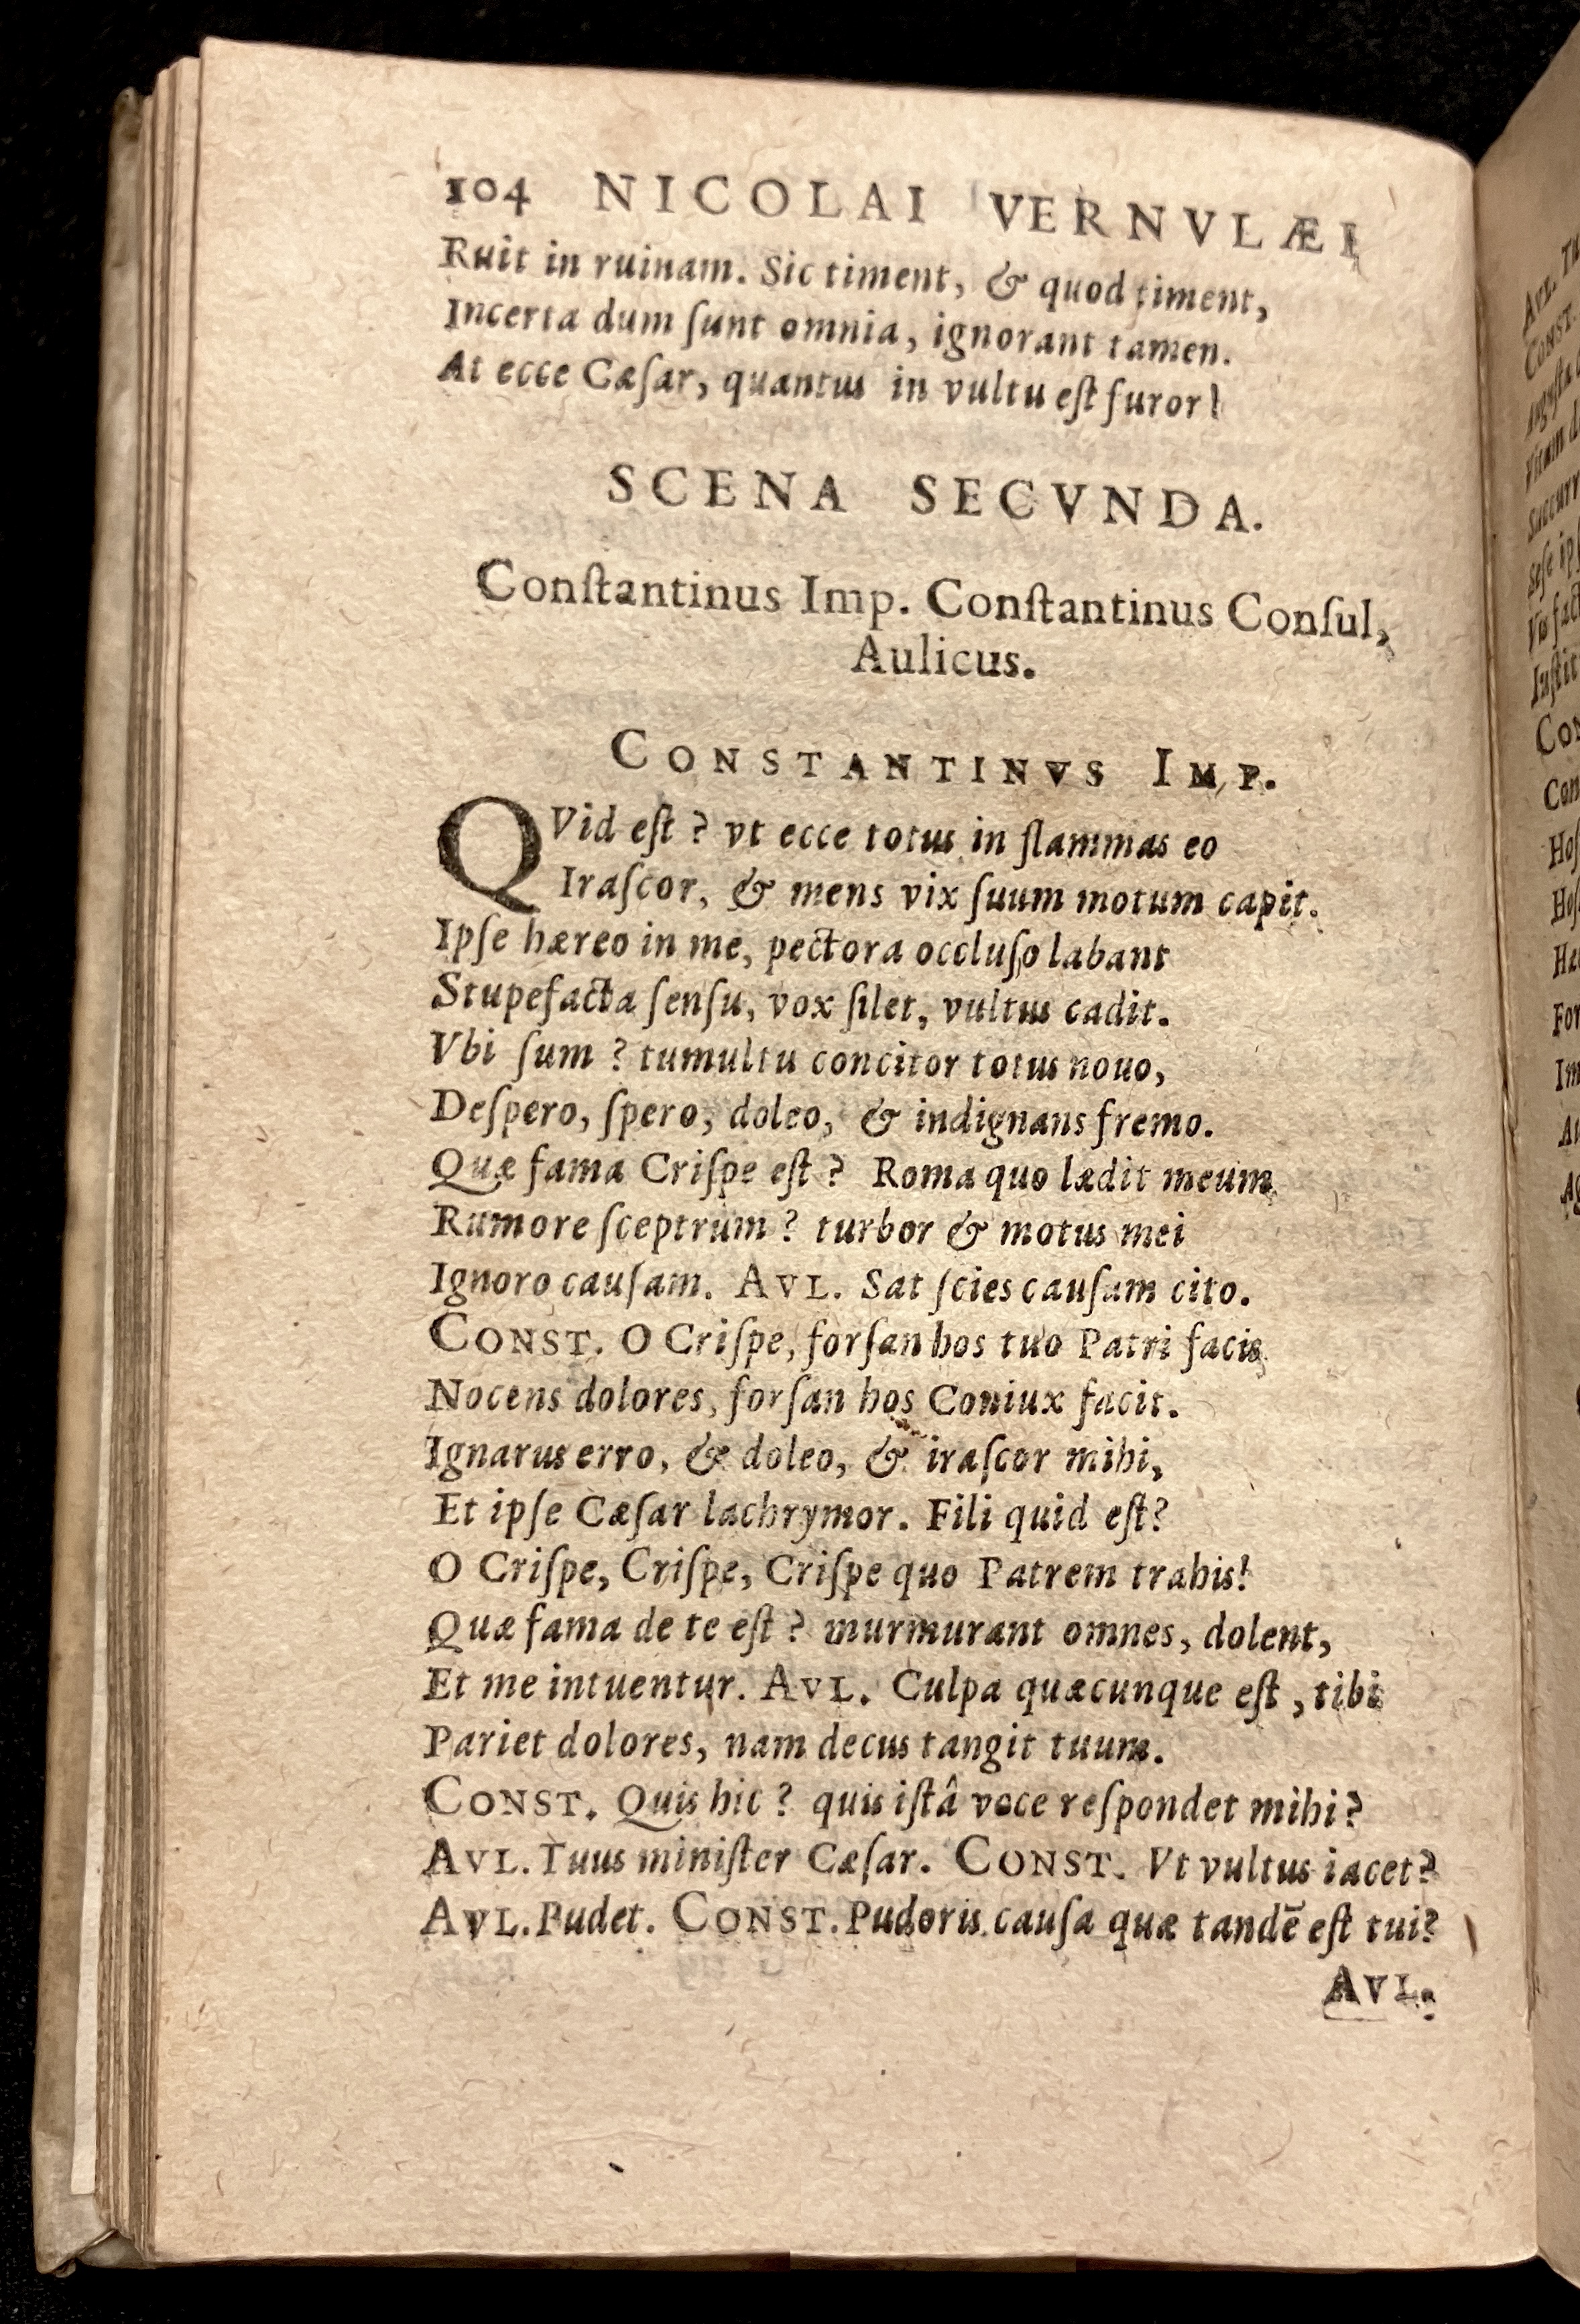 104 NICOLAI VERNVLÆI
Ruit in ruinam. Sic timent, & quod timent,
Incerta dum ſunt omnia, ignorant tamen.
At ecce Cæſar, quantus in vultu eſt furor!
SCENA SECVNDA.
Conſtantinus Imp. Conſtantinus Conſul,
Aulicus.
CONSTANTINVS IMP.
QVid eſt? vt ecce totus in flammas eo
Iraſcor, & mens vix ſuum motum capit.
Ipſe hæreo in me, pectora occluſo labant
Stupefacta ſenſu, vox ſilet, vultus cadit.
Vbi ſum? tumultu concitor totus nouo,
Deſpero, ſpero, doleo, & indignans fremo.
Quæ fama Criſpe eſt? Roma quo lædit meum
Rumore ſceptrum? turbor & motus mei
Ignoro cauſam. AVL. Sat ſcies cauſam cito.
CONST. O Criſpe, forſan hos tuo Patri facis
Nocens dolores, forſan hos Coniux facit.
Ignarus erro, & doleo, & iraſcor mihi,
Et ipſe Cæſar lachrymor. Fili quid eſt?
O Criſpe, Criſpe, Criſpe quo Patrem trahis!
Quæ fama de te eſt? murmurant omnes, dolent,
Et me intuentur. AVL. Culpa quæcunque eſt, tibi
Pariet dolores, nam decus tangit tuum.
CONST. Quis hic? quis iſtâ voce reſpondet mihi?
AVL. Tuus miniſter Cæſar. CONST. Vt vultus iacet?
AVL. Pudet. CONST. Pudoris cauſa quæ tandē eſt tui?
AVL.